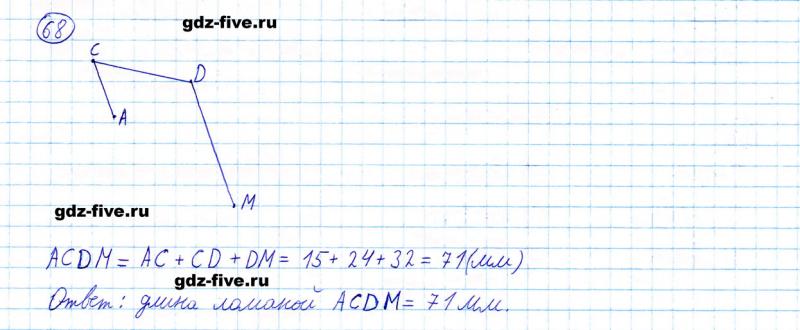 68
gdz-five.ru
C
D
A
M
gdz-five.ru
ACDM = AC + CD + DM = 15 + 24 + 32 = 71(мм)
gdz-five.ru
Ответ: длина ломаной ACDM = 71 мм.